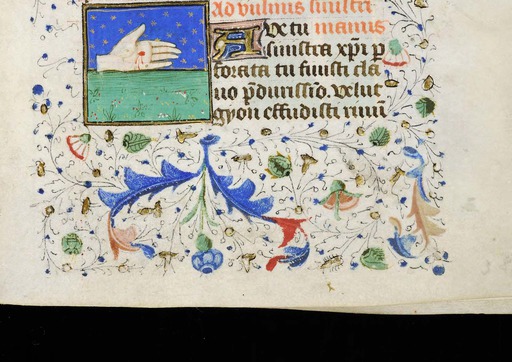 Ad vulnus sinistri
Ave tu manus
sinistra xp̄i p̲
forata tu fuisti cla
uo p̄durissīo. velut
gyon effudisti riuū